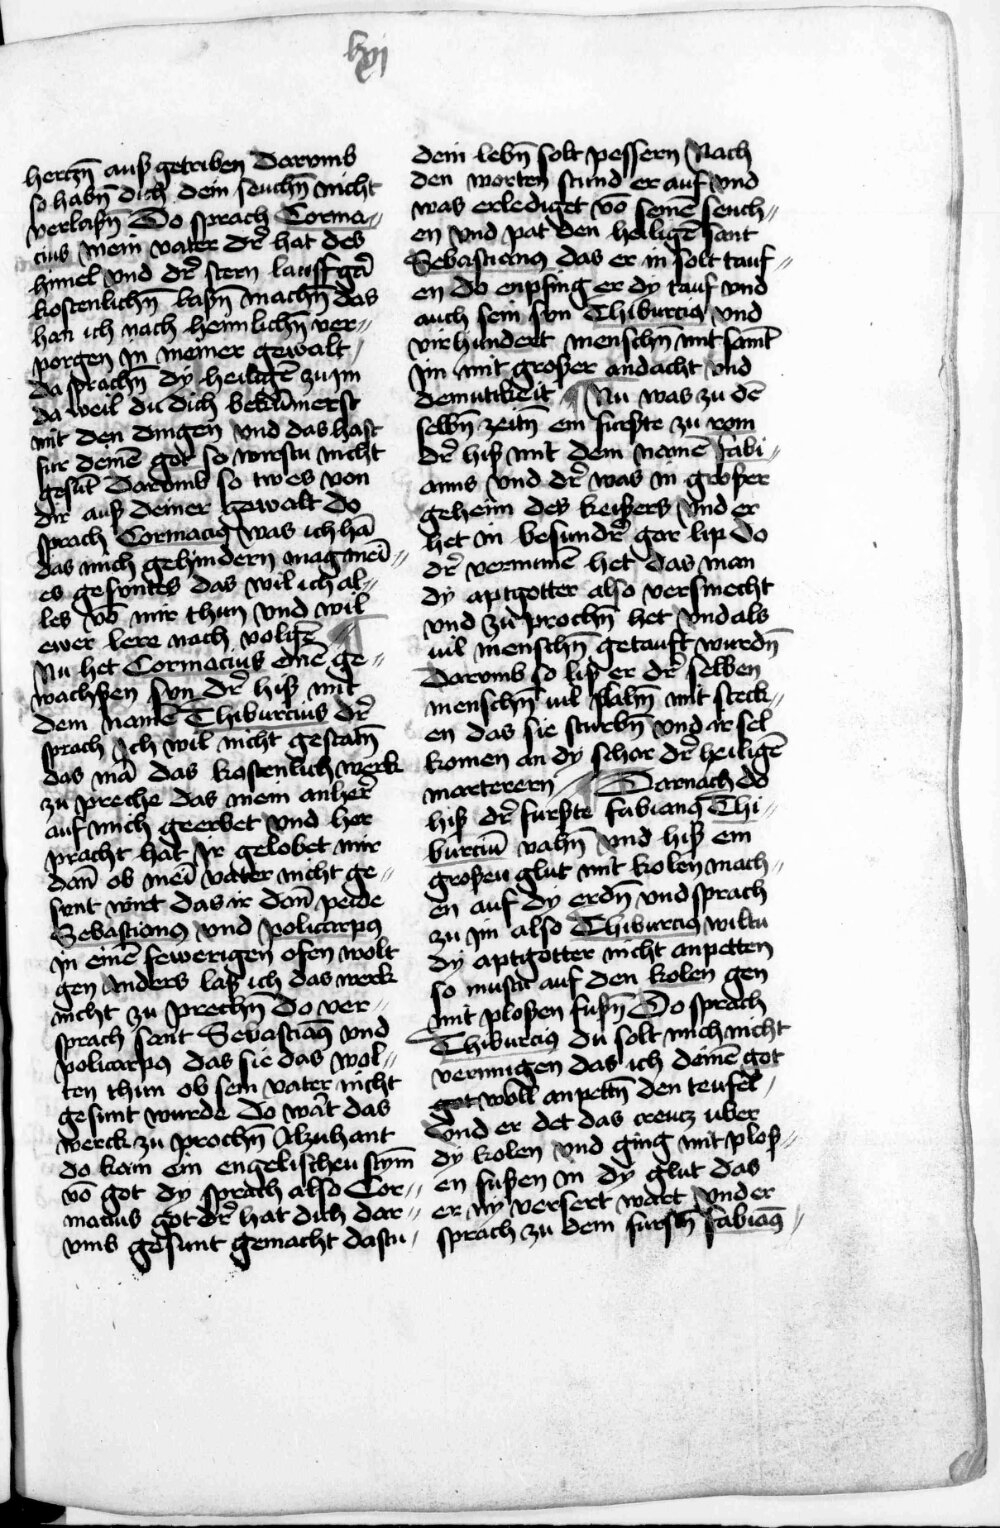 lxvj
hertzn̄ auß getriben Darvmb
so habn̄ dich dein seuchn̄ nicht
verlaßn̄ Do sprach Corma⸗
cius mein vater dr̄ hat des
himel vnd dr̄ stern lauff gar̄
kostenlichn̄ laßn̄ machn̄ das
han ich nach heimlichn̄ ver⸗
porgen in meiner gewalt
da sprachn̄ dÿ heiligē zu im
da weil du dich bekūmerst
mit den dingen vnd das hast
fur deinē got so wirstu nicht
gesūt Darvmb so tw es von
dir auß deiner gewalt do
sprach Cormaciꝰ was ich hā
das mich gehindern mag meī⸗
es gesuntes das wil ich al⸗
les vō mir thun vnd wil
ewer lere nach volgē
Nu het Cormacius einē ge⸗
wachßen sun dr̄ hiß mit
dem namē Thiburcius dr̄
sprach ich wil nicht gestatn̄
das mā das kostenlich werk
zu preche das mein anher̄
auf mich geerbet vnd her
pracht hat ir gelobet mir
dan̄ ob meī vater nicht ge⸗
sunt wirt das ir dan̄ peide
Sebastianꝰ vnd policarpꝰ
in einē fewerigen ofen wolt
gen anders laß ich das werk
nicht zu prechn̄ Do ver⸗
sprach sant Sebastianꝰ vnd
policarpꝰ das sie das wol⸗
ten thun ob sein vater nicht
gesunt wurde do wart das
werck zu prochn̄ Alzuhant
do kam ein engelischeu stym̄
vō got dy sprach also Cor⸗
macius got dr̄ hat dich dar⸗
vmb gesunt gemacht dastu
dein lebn̄ solt pessern Nach
den worten stund er auf vnd
was erlediget vō seinē seuch⸗
en vnd pat den heiligē sant
Sebastianꝰ das er in solt tauf⸗
en do enpfing er dy tauf vnd
auch sein sun Thiburciꝰ vnd
vir hundert menschn̄ mit samt
im mit großer andacht vnd
demutikeit Nu was zu dē
selbn̄ zeitn̄ ein furste zu rom
dr̄ hiß mit dem namē fabi⸗
anus vnd dr̄ was in großer
geheim des keisers vnd er
het in besundr̄ gar lip do
dr̄ vernumē het das man
dy aptgotter also versmecht
vnd zu prochn̄ het vnd als
uil menschn̄ getauft wurdn̄
Darvmb so liß er dr̄ selben
menschn̄ uil slahn̄ mit steck⸗
en das sie sturbn̄ vnd ir sel
komen an dy schar dr̄ heiligē
marterern Darnach do
hiß dr̄ furste fabianꝰ Thi⸗
burciū vahn̄ vnd hiß ein
großeu glut mit kolen mach⸗
en auf dy erdn̄ vnd sprach
zu im also Thiburciꝰ wiltu
dy aptgotter nicht anpetten
so mustu auf den kolen gen
mit ploßen fußn̄ Do sprach
Thiburciꝰ du solt mich nicht
vermugen das ich deinē got
woll anpettn̄ den teufel
vnd er det das creutz uber
dy kolen vnd ging mit ploß⸗
en fußen in dy glut das
er ny versert wart vnd er
sprach zu dem furstn̄ fabianꝰ